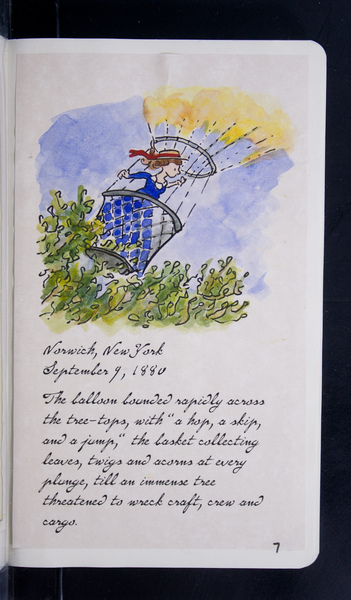 Norwich, New York
September 9, 1880
The balloon bounded rapidly across
the tree-tops, with "a hop, a skip,
and a jump," the basket collecting
leaves, twigs and acorns at every
plunge, till an immense tree
threatened to wreck craft, crew and
cargo.
7